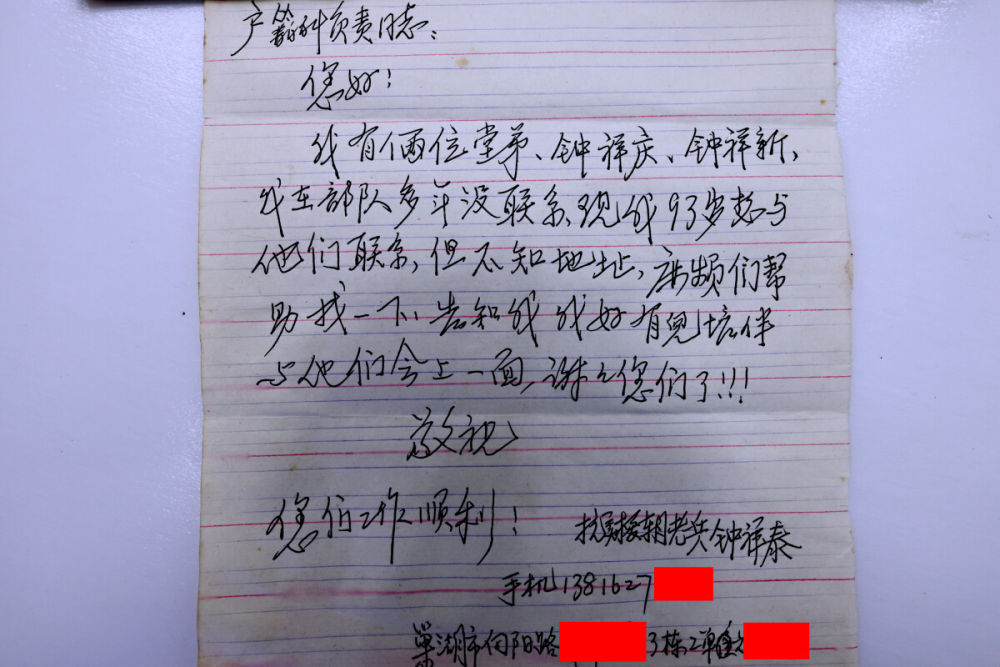 户籍科负责同志：
您好！
我有俩位堂弟、钟祥庆、钟祥新，
我在部队多年没联系，现我93岁想与
他们联系，但不知地址，麻烦们帮
助找一下，告知我 我好有儿培伴
与他们会上一面，谢谢您们了!!!
敬祝
您们工作顺利！
抗美援朝老兵钟祥泰
手机1381627
巢湖市向阳路 3栋2单